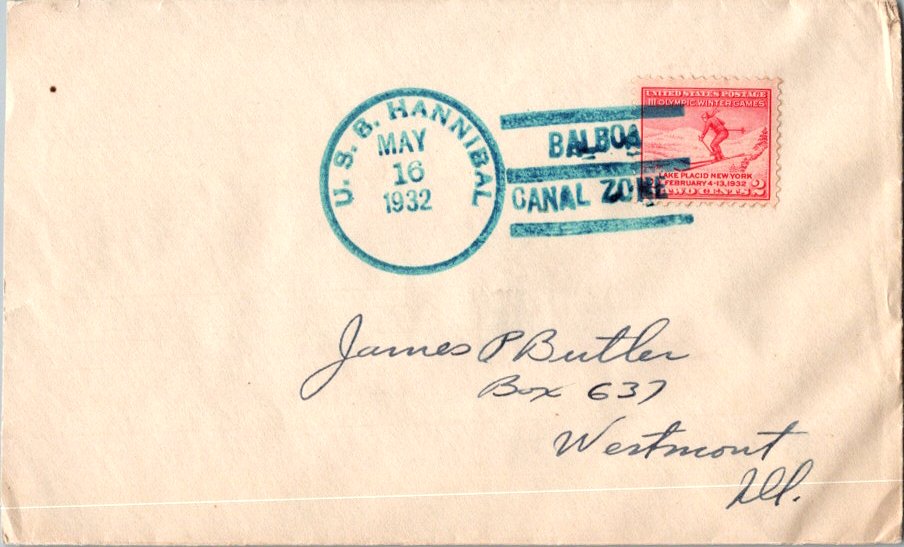 U. S. S. HANNIBAL
MAY
16
1932
BALBOA
CANAL ZONE
UNITED STATES POSTAGE
III OLYMPIC WINTER GAMES
LAKE PLACID NEW YORK
FEBRUARY 4-13, 1932
TWO CENTS 2
James P Butler
Box 637
Westmont
Ill.